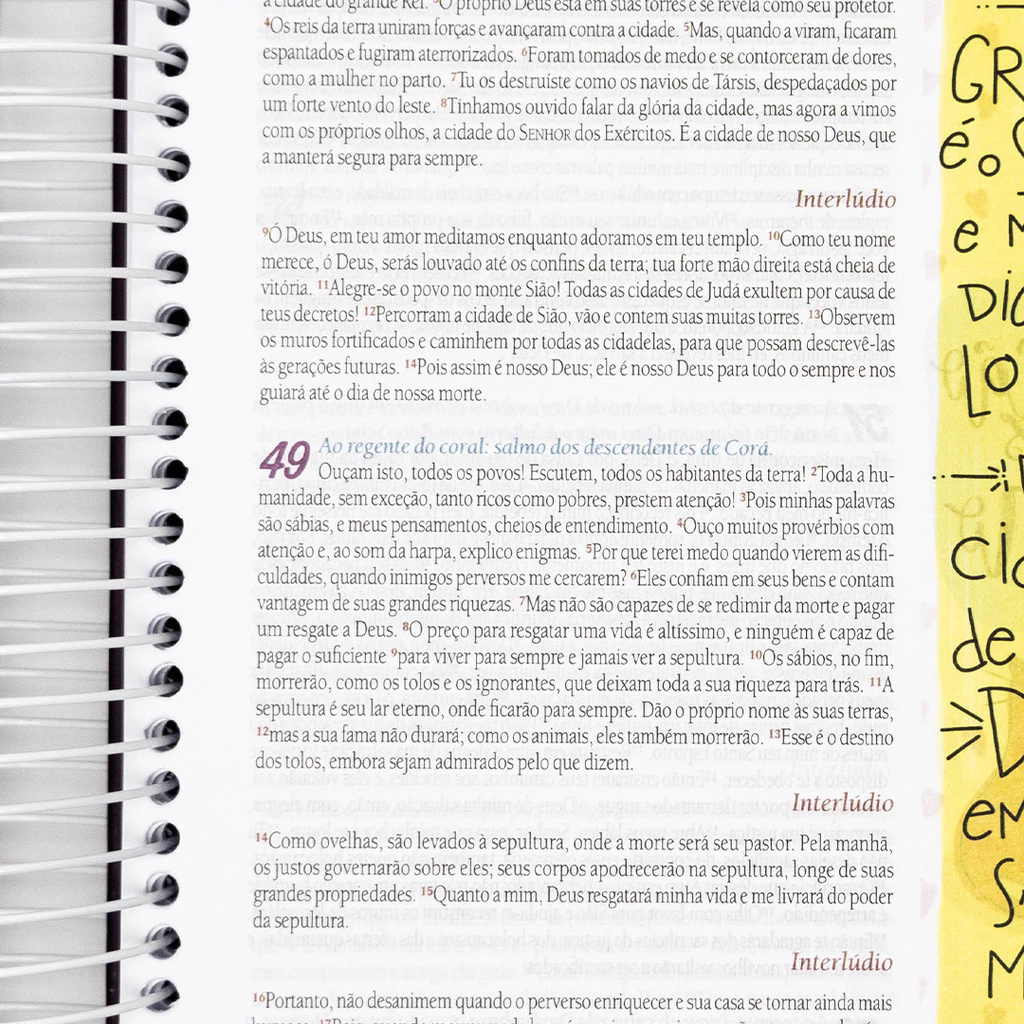 a cidade do grande Rei. ³O próprio Deus está em suas torres e se revela como seu protetor.
⁴Os reis da terra uniram forças e avançaram contra a cidade. ⁵Mas, quando a viram, ficaram
espantados e fugiram aterrorizados. ⁶Foram tomados de medo e se contorceram de dores,
como a mulher no parto. ⁷Tu os destruíste como os navios de Társis, despedaçados por
um forte vento do leste. ⁸Tínhamos ouvido falar da glória da cidade, mas agora a vimos
com os próprios olhos, a cidade do SENHOR dos Exércitos. É a cidade de nosso Deus, que
a manterá segura para sempre.
Interlúdio
⁹Ó Deus, em teu amor meditamos enquanto adoramos em teu templo. ¹⁰Como teu nome
merece, ó Deus, serás louvado até os confins da terra; tua forte mão direita está cheia de
vitória. ¹¹Alegre-se o povo no monte Sião! Todas as cidades de Judá exultem por causa de
teus decretos! ¹²Percorram a cidade de Sião, vão e contem suas muitas torres. ¹³Observem
os muros fortificados e caminhem por todas as cidadelas, para que possam descrevê-las
às gerações futuras. ¹⁴Pois assim é nosso Deus; ele é nosso Deus para todo o sempre e nos
guiará até o dia de nossa morte.
49 Ao regente do coral: salmo dos descendentes de Corá.
Ouçam isto, todos os povos! Escutem, todos os habitantes da terra! ²Toda a hu-
manidade, sem exceção, tanto ricos como pobres, prestem atenção! ³Pois minhas palavras
são sábias, e meus pensamentos, cheios de entendimento. ⁴Ouço muitos provérbios com
atenção e, ao som da harpa, explico enigmas. ⁵Por que terei medo quando vierem as difi-
culdades, quando inimigos perversos me cercarem? ⁶Eles confiam em seus bens e contam
vantagem de suas grandes riquezas. ⁷Mas não são capazes de se redimir da morte e pagar
um resgate a Deus. ⁸O preço para resgatar uma vida é altíssimo, e ninguém é capaz de
pagar o suficiente ⁹para viver para sempre e jamais ver a sepultura. ¹⁰Os sábios, no fim,
morrerão, como os tolos e os ignorantes, que deixam toda a sua riqueza para trás. ¹¹A
sepultura é seu lar eterno, onde ficarão para sempre. Dão o próprio nome às suas terras,
¹²mas a sua fama não durará; como os animais, eles também morrerão. ¹³Esse é o destino
dos tolos, embora sejam admirados pelo que dizem.
Interlúdio
¹⁴Como ovelhas, são levados à sepultura, onde a morte será seu pastor. Pela manhã,
os justos governarão sobre eles; seus corpos apodrecerão na sepultura, longe de suas
grandes propriedades. ¹⁵Quanto a mim, Deus resgatará minha vida e me livrará do poder
da sepultura.
Interlúdio
¹⁶Portanto, não desanimem quando o perverso enriquecer e sua casa se tornar ainda mais
GR
é o
e
de
em